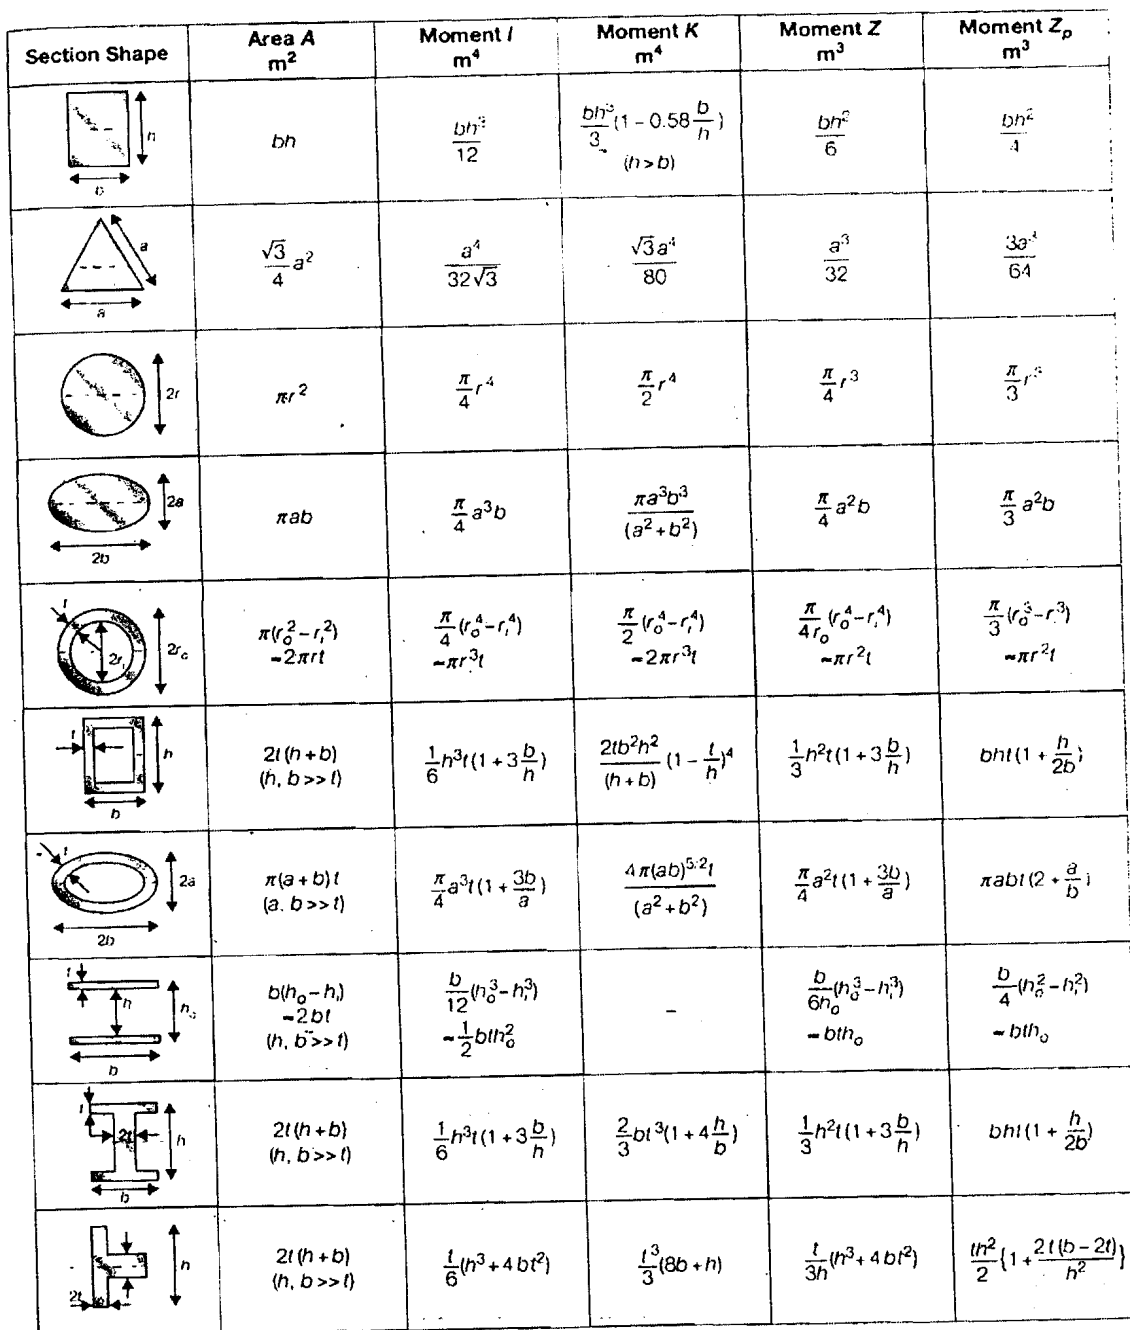 Section Shape | Area A m² | Moment I m⁴ | Moment K m⁴ | Moment Z m³ | Moment Z_p m³
h b | bh | bh³/12 | bh³/3 (1 - 0.58 b/h) (h > b) | bh²/6 | bh²/4
a a | √3/4 a² | a⁴/32√3 | √3a⁴/80 | a³/32 | 3a³/64
2r | πr² | π/4 r⁴ | π/2 r⁴ | π/4 r³ | π/3 r³
2a 2b | πab | π/4 a³b | πa³b³/(a² + b²) | π/4 a²b | π/3 a²b
t 2r_i 2r_o | π(r_o² - r_i²) ≈ 2πrt | π/4 (r_o⁴ - r_i⁴) ≈ πr³t | π/2 (r_o⁴ - r_i⁴) ≈ 2πr³t | π/4r_o (r_o⁴ - r_i⁴) ≈ πr²t | π/3 (r_o³ - r_i³) ≈ πr²t
t h b | 2t(h + b) (h, b >> t) | 1/6 h³t(1 + 3 b/h) | 2tb²h²/(h + b) (1 - t/h)⁴ | 1/3 h²t(1 + 3 b/h) | bht(1 + h/2b)
t 2a 2b | π(a + b)t (a, b >> t) | π/4 a³t(1 + 3b/a) | 4π(ab)^5/2 t/(a² + b²) | π/4 a²t(1 + 3b/a) | πabt(2 + a/b)
t h h_o b | b(h_o - h_i) ≈ 2bt (h, b >> t) | b/12 (h_o³ - h_i³) ≈ 1/2 bth_o² | - | b/6h_o (h_o³ - h_i³) ≈ bth_o | b/4 (h_o² - h_i²) ≈ bth_o
t 2t h b | 2t(h + b) (h, b >> t) | 1/6 h³t(1 + 3 b/h) | 2/3 bt³(1 + 4 h/b) | 1/3 h²t(1 + 3 b/h) | bht(1 + h/2b)
2t h | 2t(h + b) (h, b >> t) | t/6 (h³ + 4bt²) | t³/3 (8b + h) | t/3h (h³ + 4bt²) | th²/2 {1 + 2t(b - 2t)/h²}